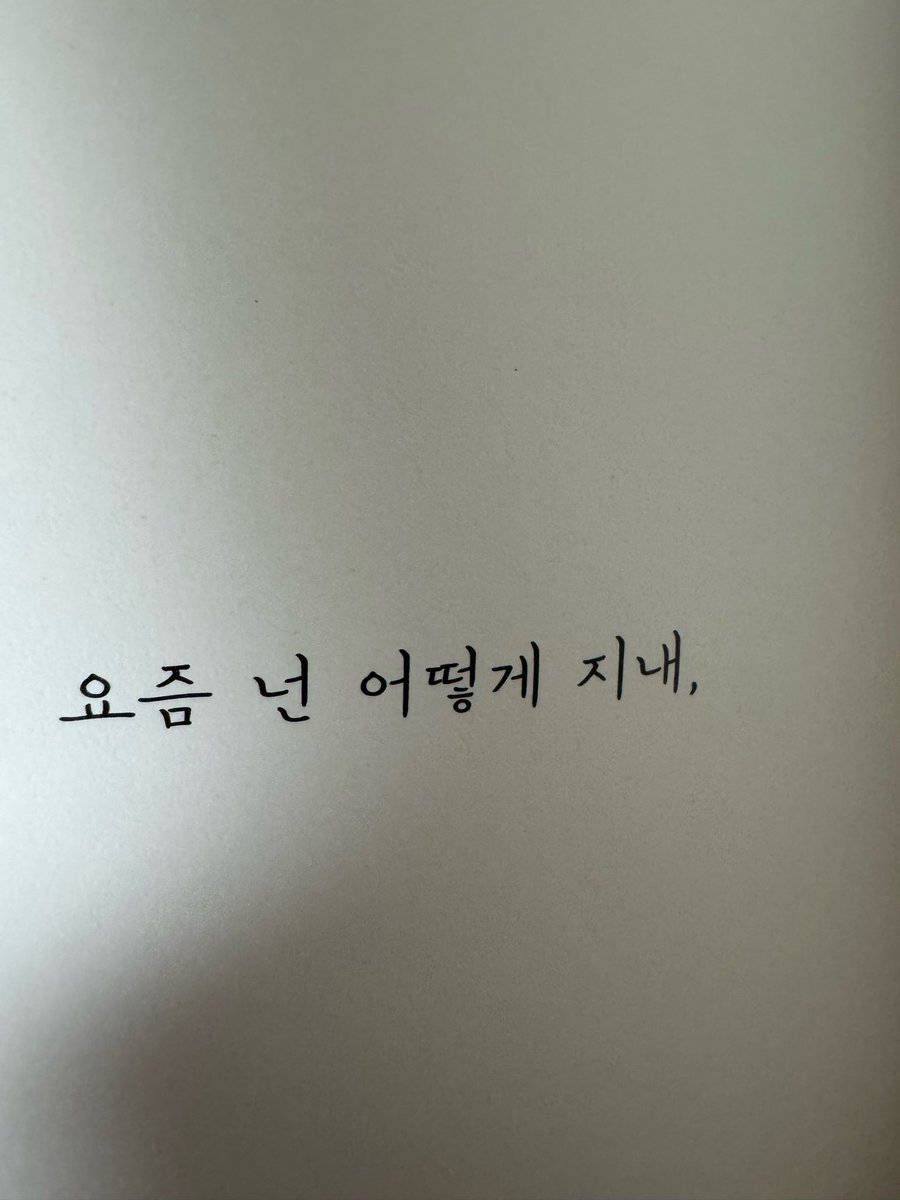 요즘 넌 어떻게 지내,